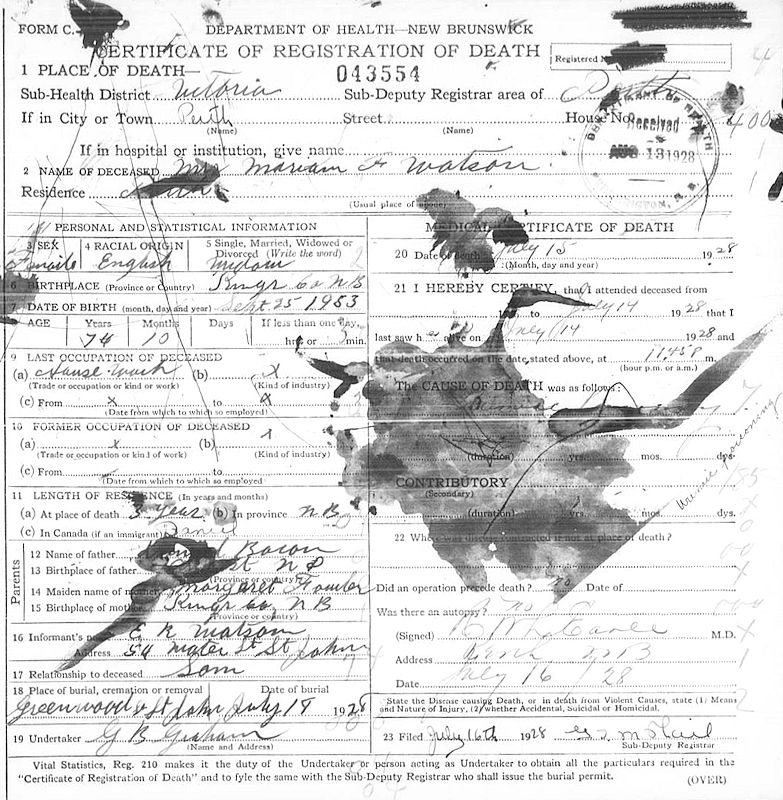 FORM C.
DEPARTMENT OF HEALTH—NEW BRUNSWICK
CERTIFICATE OF REGISTRATION OF DEATH
Registered
1 PLACE OF DEATH—
043554
Sub-Health District Victoria Sub-Deputy Registrar area of Perth
If in City or Town Perth Street House No.
(Name) (Name)
DEPARTMENT OF HEALTH
Received
AUG 13 1928
If in hospital or institution, give name
(Name)
2 NAME OF DECEASED Mrs Mariam F Watson
Residence
(Usual place of abode)
PERSONAL AND STATISTICAL INFORMATION
3 SEX 4 RACIAL ORIGIN 5 Single, Married, Widowed or Divorced (Write the word)
Female English Widow
6 BIRTHPLACE (Province or Country) Kings Co N B
7 DATE OF BIRTH (month, day and year) Sept 25 1953
AGE Years Months Days If less than one day,
74 10 hrs or min.
9 LAST OCCUPATION OF DECEASED
(a) House Work (b) x
(Trade or occupation or kind or work) (Kind of industry)
(c) From x to x
(Date from which to which so employed)
10 FORMER OCCUPATION OF DECEASED
(a) x (b) x
(Trade or occupation or kind of work) (Kind of industry)
(c) From to
(Date from which to which so employed
11 LENGTH OF RESIDENCE (In years and months)
(a) At place of death 3 Year (b) In province N B
(c) In Canada (if an immigrant)
Parents
12 Name of father Bacon
13 Birthplace of father
(Province or country)
14 Maiden name of mother Margaret Fowler
15 Birthplace of mother Kings Co, N B
(Province or country)
16 Informant's name E R Watson
Address 54 Water St St John
17 Relationship to deceased Son
18 Place of burial, cremation or removal Date of burial
Greenwood St John July 18 1928
19 Undertaker G B Graham
(Name and Address)
MEDICAL CERTIFICATE OF DEATH
20 Date of death July 15 1928
(Month, day and year)
21 I HEREBY CERTIFY, that I attended deceased from
to July 14 1928 that I
last saw h alive on July 14 1928 and
that death occurred on the date stated above, at 11.45 P m.
(hour p.m. or a.m.)
The CAUSE OF DEATH was as follows:
(duration) yrs. mos. dys.
Uremic poisoning
CONTRIBUTORY
(Secondary)
(duration) yrs. mos. dys.
22 Where was disease contracted if not at place of death?
Did an operation precede death? no Date of
Was there an autopsy? no
(Signed) M.D.
Address Perth N B
Date July 16 / 28
State the Disease causing Death, or in death from Violent Causes, state (1) Means and Nature of Injury, (2) whether Accidental, Suicidal or Homicidal.
23 Filed July 16th 1928
Sub-Deputy Registrar
Vital Statistics, Reg. 210 makes it the duty of the Undertaker or person acting as Undertaker to obtain all the particulars required in the
"Certificate of Registration of Death" and to fyle the same with the Sub-Deputy Registrar who shall issue the burial permit. (OVER)